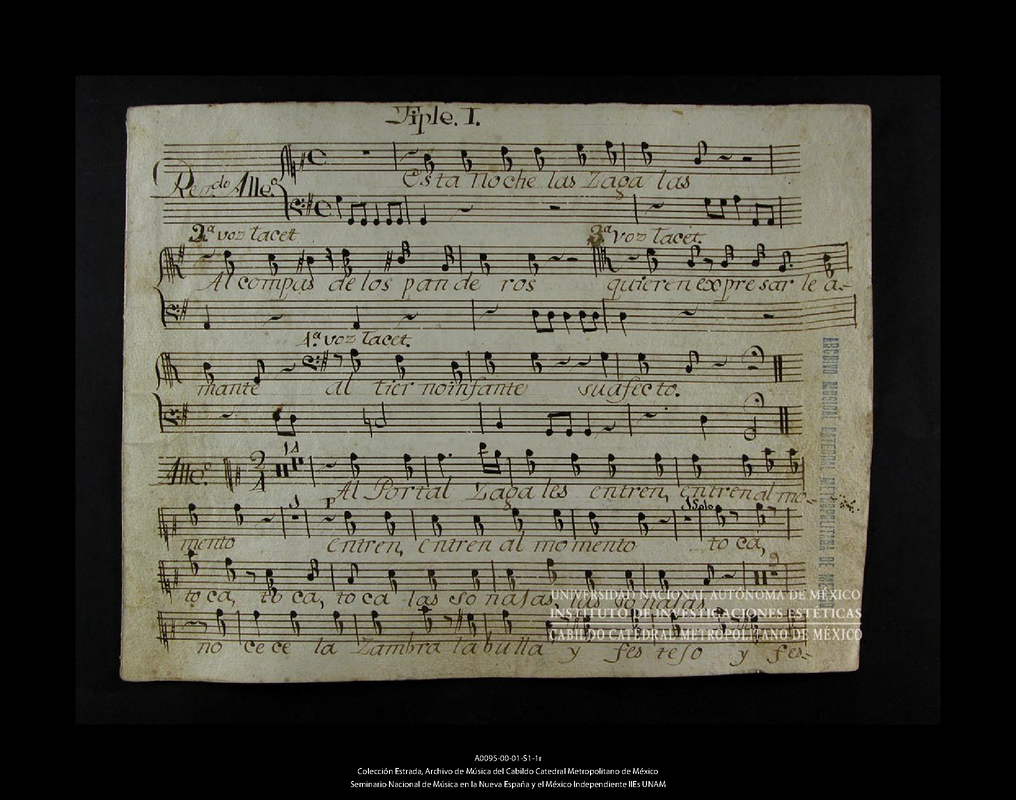 Tiple. I.
Esta noche las Zaga las
Rendo Alleo
2a voz tacet
3a voz tacet.
Al compas de los pan de ros quieren expre sar le a-
1a voz tacet.
mante al tier no infante su afecto.
Alleo 2 4 14
Al Portal Zaga les entren, entren al mo-
1 P Solo
mento entren, entren al mo mento to ca,
2
to ca, to ca, to ca las so na jas las so najas
no ce ce la Zambra la bulla y fes te jo y fes-
ARCHIVO MUSICAL CATEDRAL METROPOLITANA DE MEXICO
UNIVERSIDAD NACIONAL AUTÓNOMA DE MÉXICO
INSTITUTO DE INVESTIGACIONES ESTÉTICAS
CABILDO CATEDRAL METROPOLITANO DE MÉXICO
A0095-00-01-S1-1r
Colección Estrada, Archivo de Música del Cabildo Catedral Metropolitano de México
Seminario Nacional de Música en la Nueva España y el México Independiente IIEs UNAM